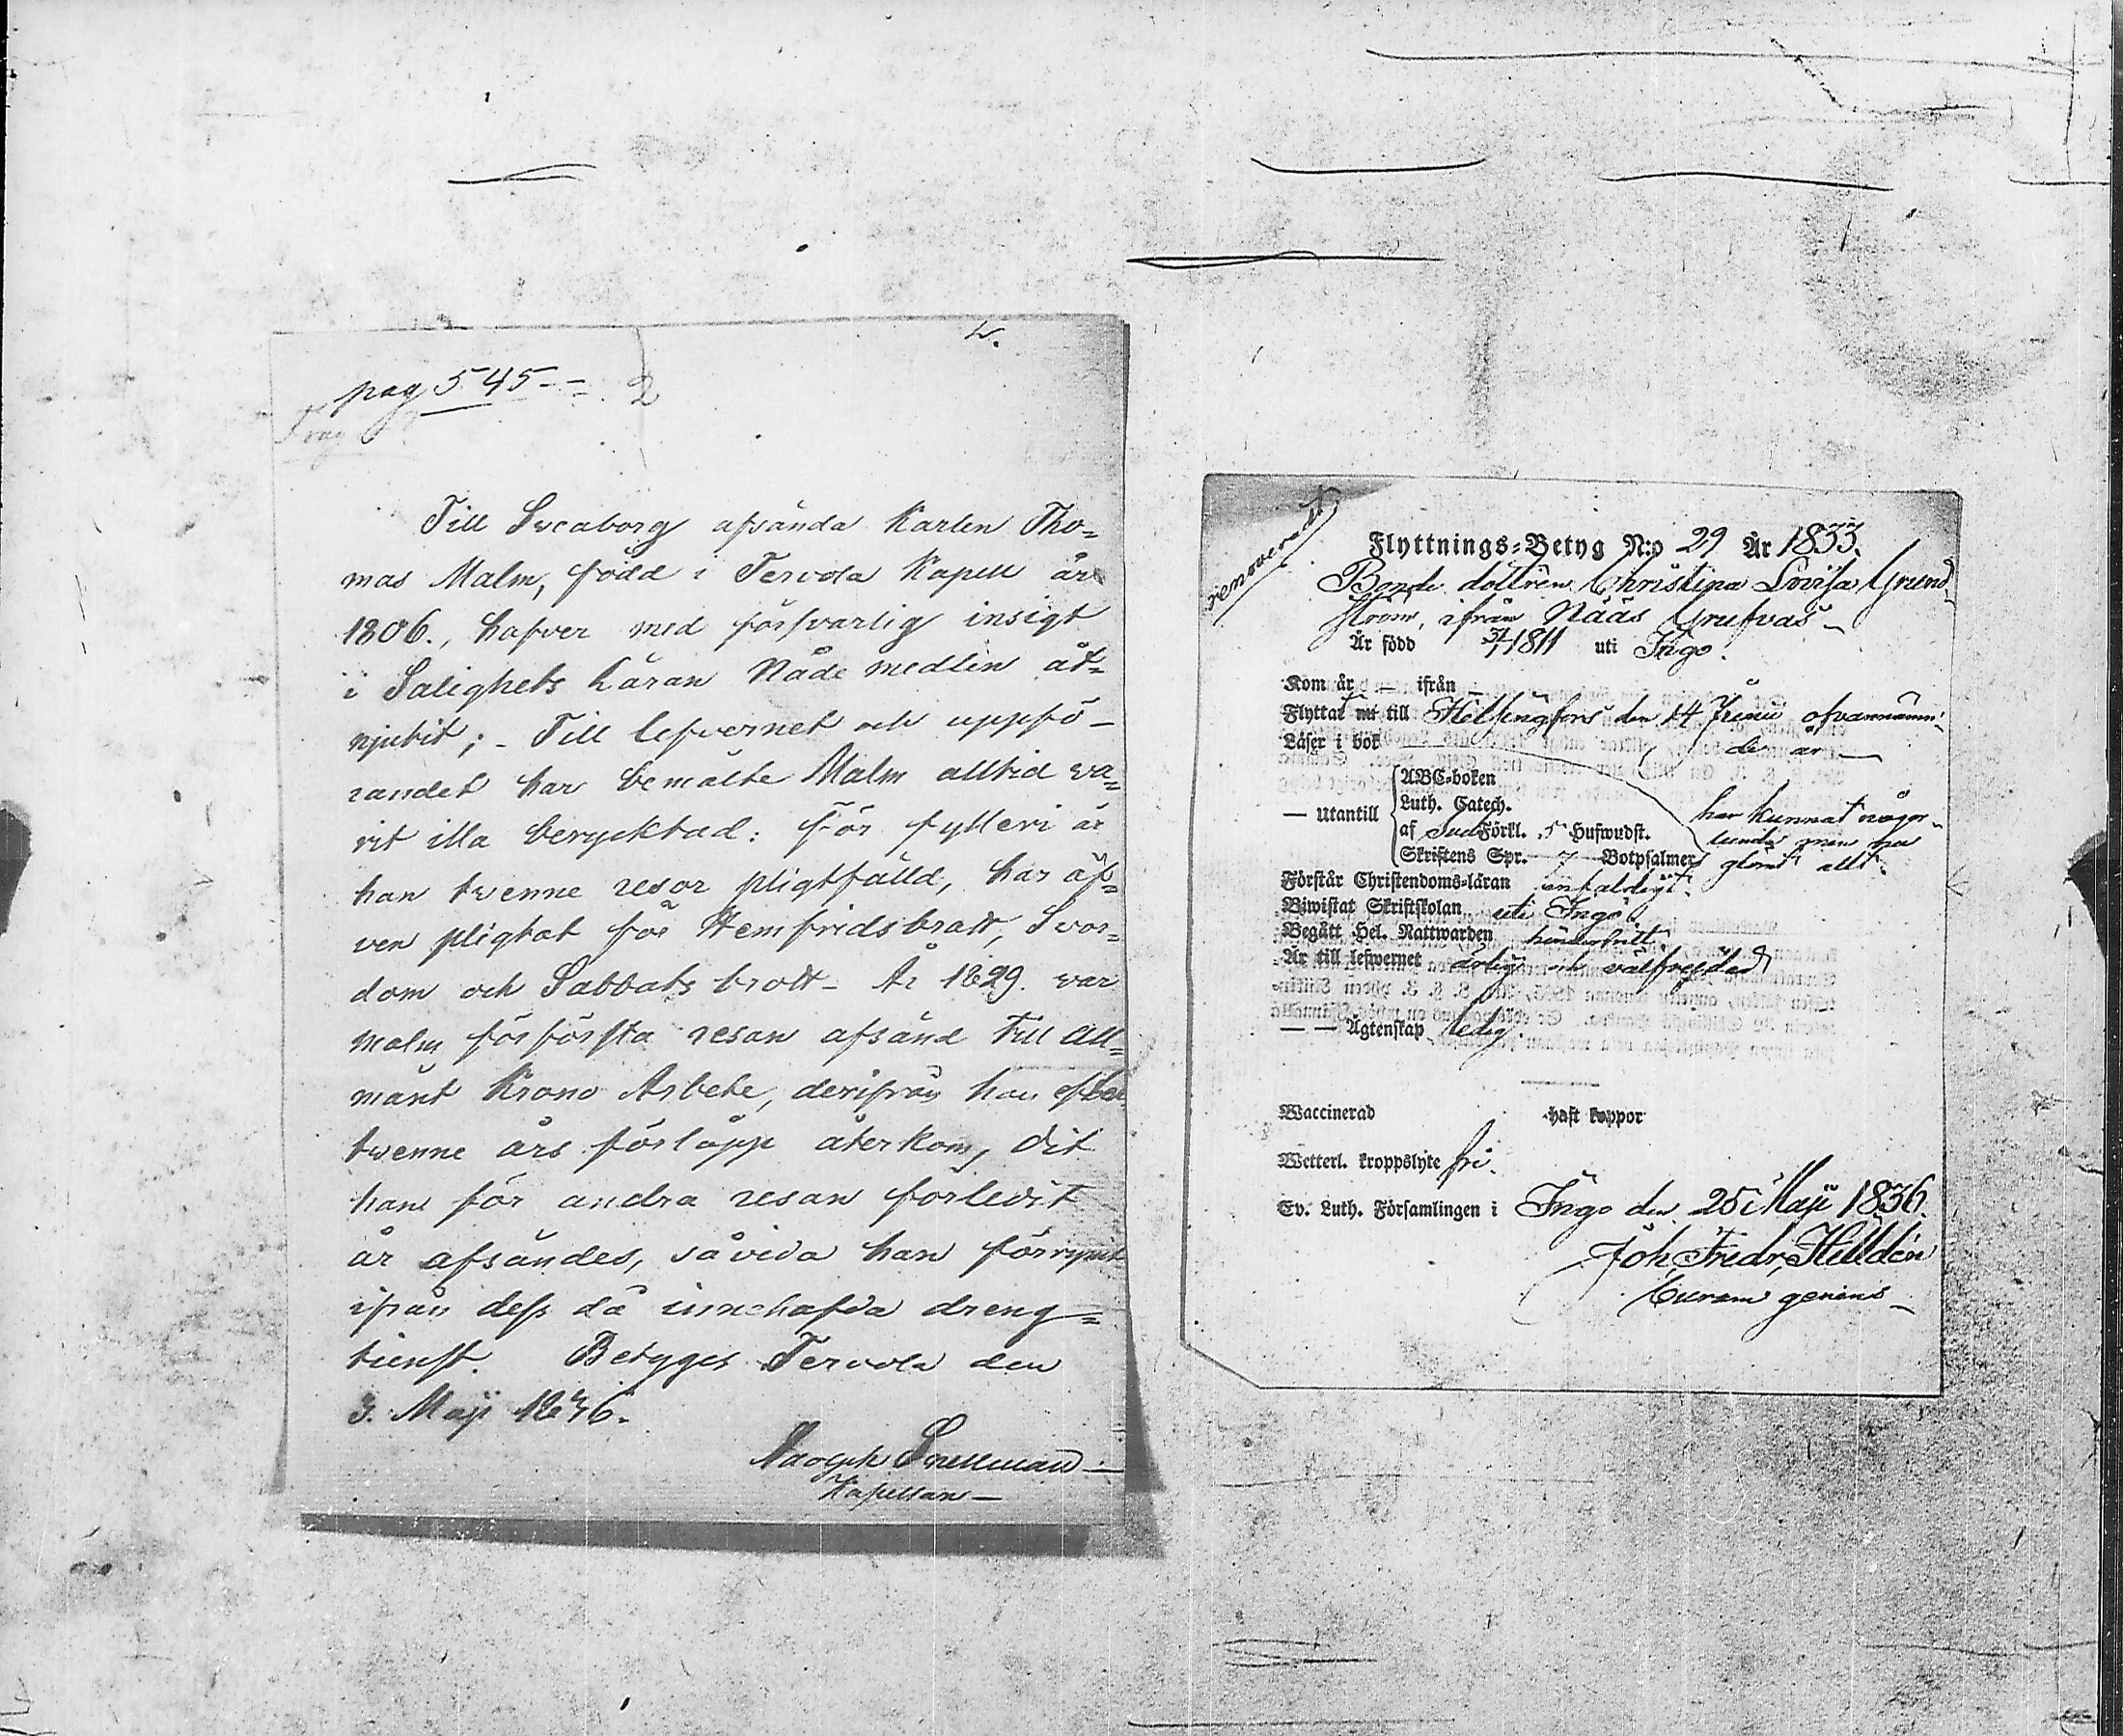 w.
pag 545 -- 2
Till Sveaborg afsända Karlen Tho=
mas Malm, född i Tervola Kapell år
1806., hafver med försvarlig insigt
i Salighets Läran Nåde medlen åt=
njutit; - Till lefvernet och uppfö-
randet har bemälte Malm alltid va=
rit illa berycktad: för fylleri är
han twenne resor pligtfälld, har äf=
ven pligtat för Hemfridsbrott, Svor=
dom och Sabbats brott - År 1829. var
Malm för första resan afsänd till All=
mänt Krono Arbete, derifrån han efter
twenne års förlopp återkom, dit
han för andra resan förledit
år afsändes, såvida han förrymt
ifrån dess då innehafda dreng=
tienst. Betyges Tervola den
3. Maji 1836.
Adolph Snellman
Kapellan
renoverad
Flyttnings=Betyg N:o 29 År 1833.
Bonde dottren Christina Lovisa Grund
ström, ifrån Nääs Grufvas
Är född 31/1 1811 uti Ingo.
Kom år — ifrån —
Flyttat nu till Helsingfors den 14 Junii ofvannämn=
de år —
Läser i bok
— utantill
ABC=boken
Luth. Catech.
af Sved. Förkl. 5 Hufwudst.
Skriftens Spr. 7 Botpsalmer
har kunnat någor=
lunda men har
glömt allt.
Förstår Christendoms=läran enfaldigt.
Biwistat Skriftskolan uti Ingo
Begått Hel. Nattwarden hinderfritt.
Är till lefwernet ärlig och välfrejdad
— — Ägtenskap ledig.
Waccinerad haft koppor
Wetterl. kroppslyte fri.
Ev. Luth. Församlingen i Ingo den 25 Maji 1836.
Joh. Fredr. Hilldén
Curam gerens